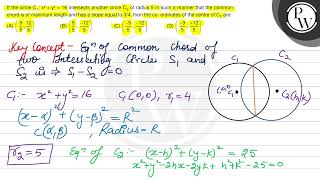 If the circle C₁: x² + y² = 16 intersects another circle C₂ of radius 5 in such a manner that the common
chord is of maximum length and has a slope equal to 3/4, then the co-ordinates of the centre of C₂ are
Key Concept - Eqⁿ of common chord of
two Intersecting Circles S₁ and
S₂ is ⇒ S₁ - S₂ = 0
C₁:- x² + y² = 16 C₁(0,0), r₁ = 4
(x-α)² + (y-β)² = R²
C(α,β), Radius = R
r₂ = 5
Eqⁿ of C₂:- (x-h)² + (y-k)² = 25
x² + y² - 2hx - 2yk + h² + k² - 25 = 0
C₁
C₂
C₂(h,k)